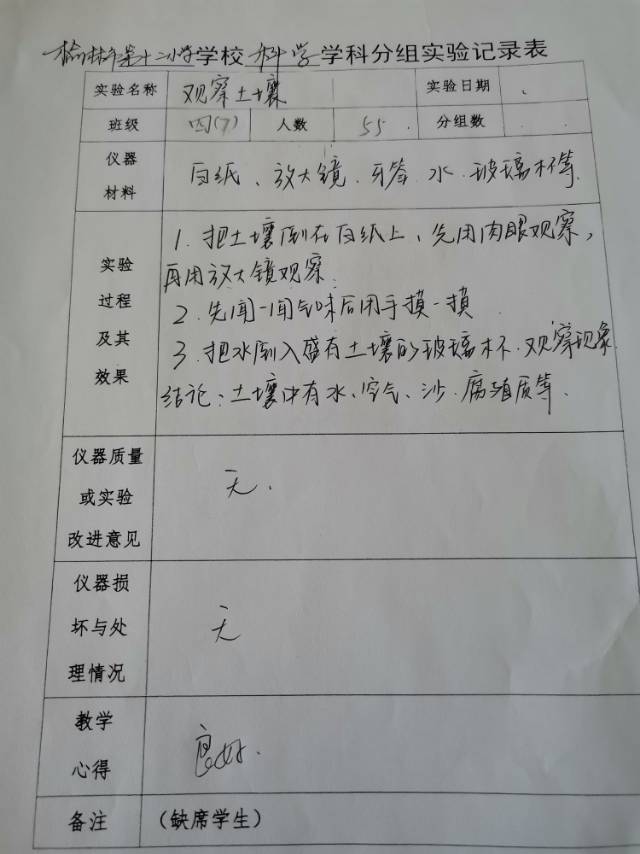 榆林市第十二小学学校 科学学科分组实验记录表
实验名称 观察土壤 实验日期
班级 四(7) 人数 55 分组数
仪器材料 白纸、放大镜、牙签、水、玻璃杯等
实验过程及其效果
1. 把土壤倒在白纸上、先用肉眼观察,
再用放大镜观察.
2. 先闻一闻气味后用手摸一摸
3. 把水倒入盛有土壤的玻璃杯.观察现象
结论:土壤中有水、空气、沙.腐殖质等.
仪器质量或实验改进意见 无.
仪器损坏与处理情况 无
教学心得 良好.
备注 (缺席学生)